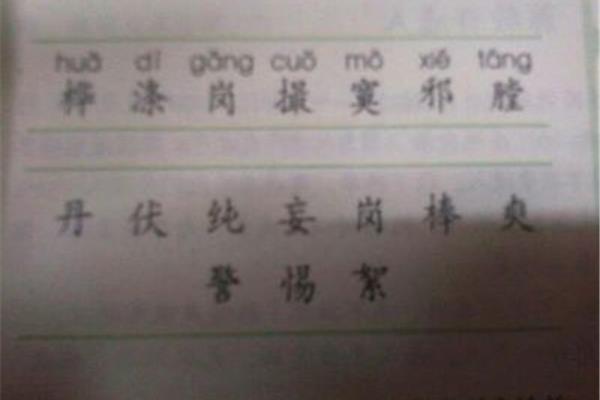 huà dí gǎng cuō mò xié táng
桦 涤 岗 撮 寞 邪 膛
丹 伏 纯 妄 岗 棒
警 惕 絮